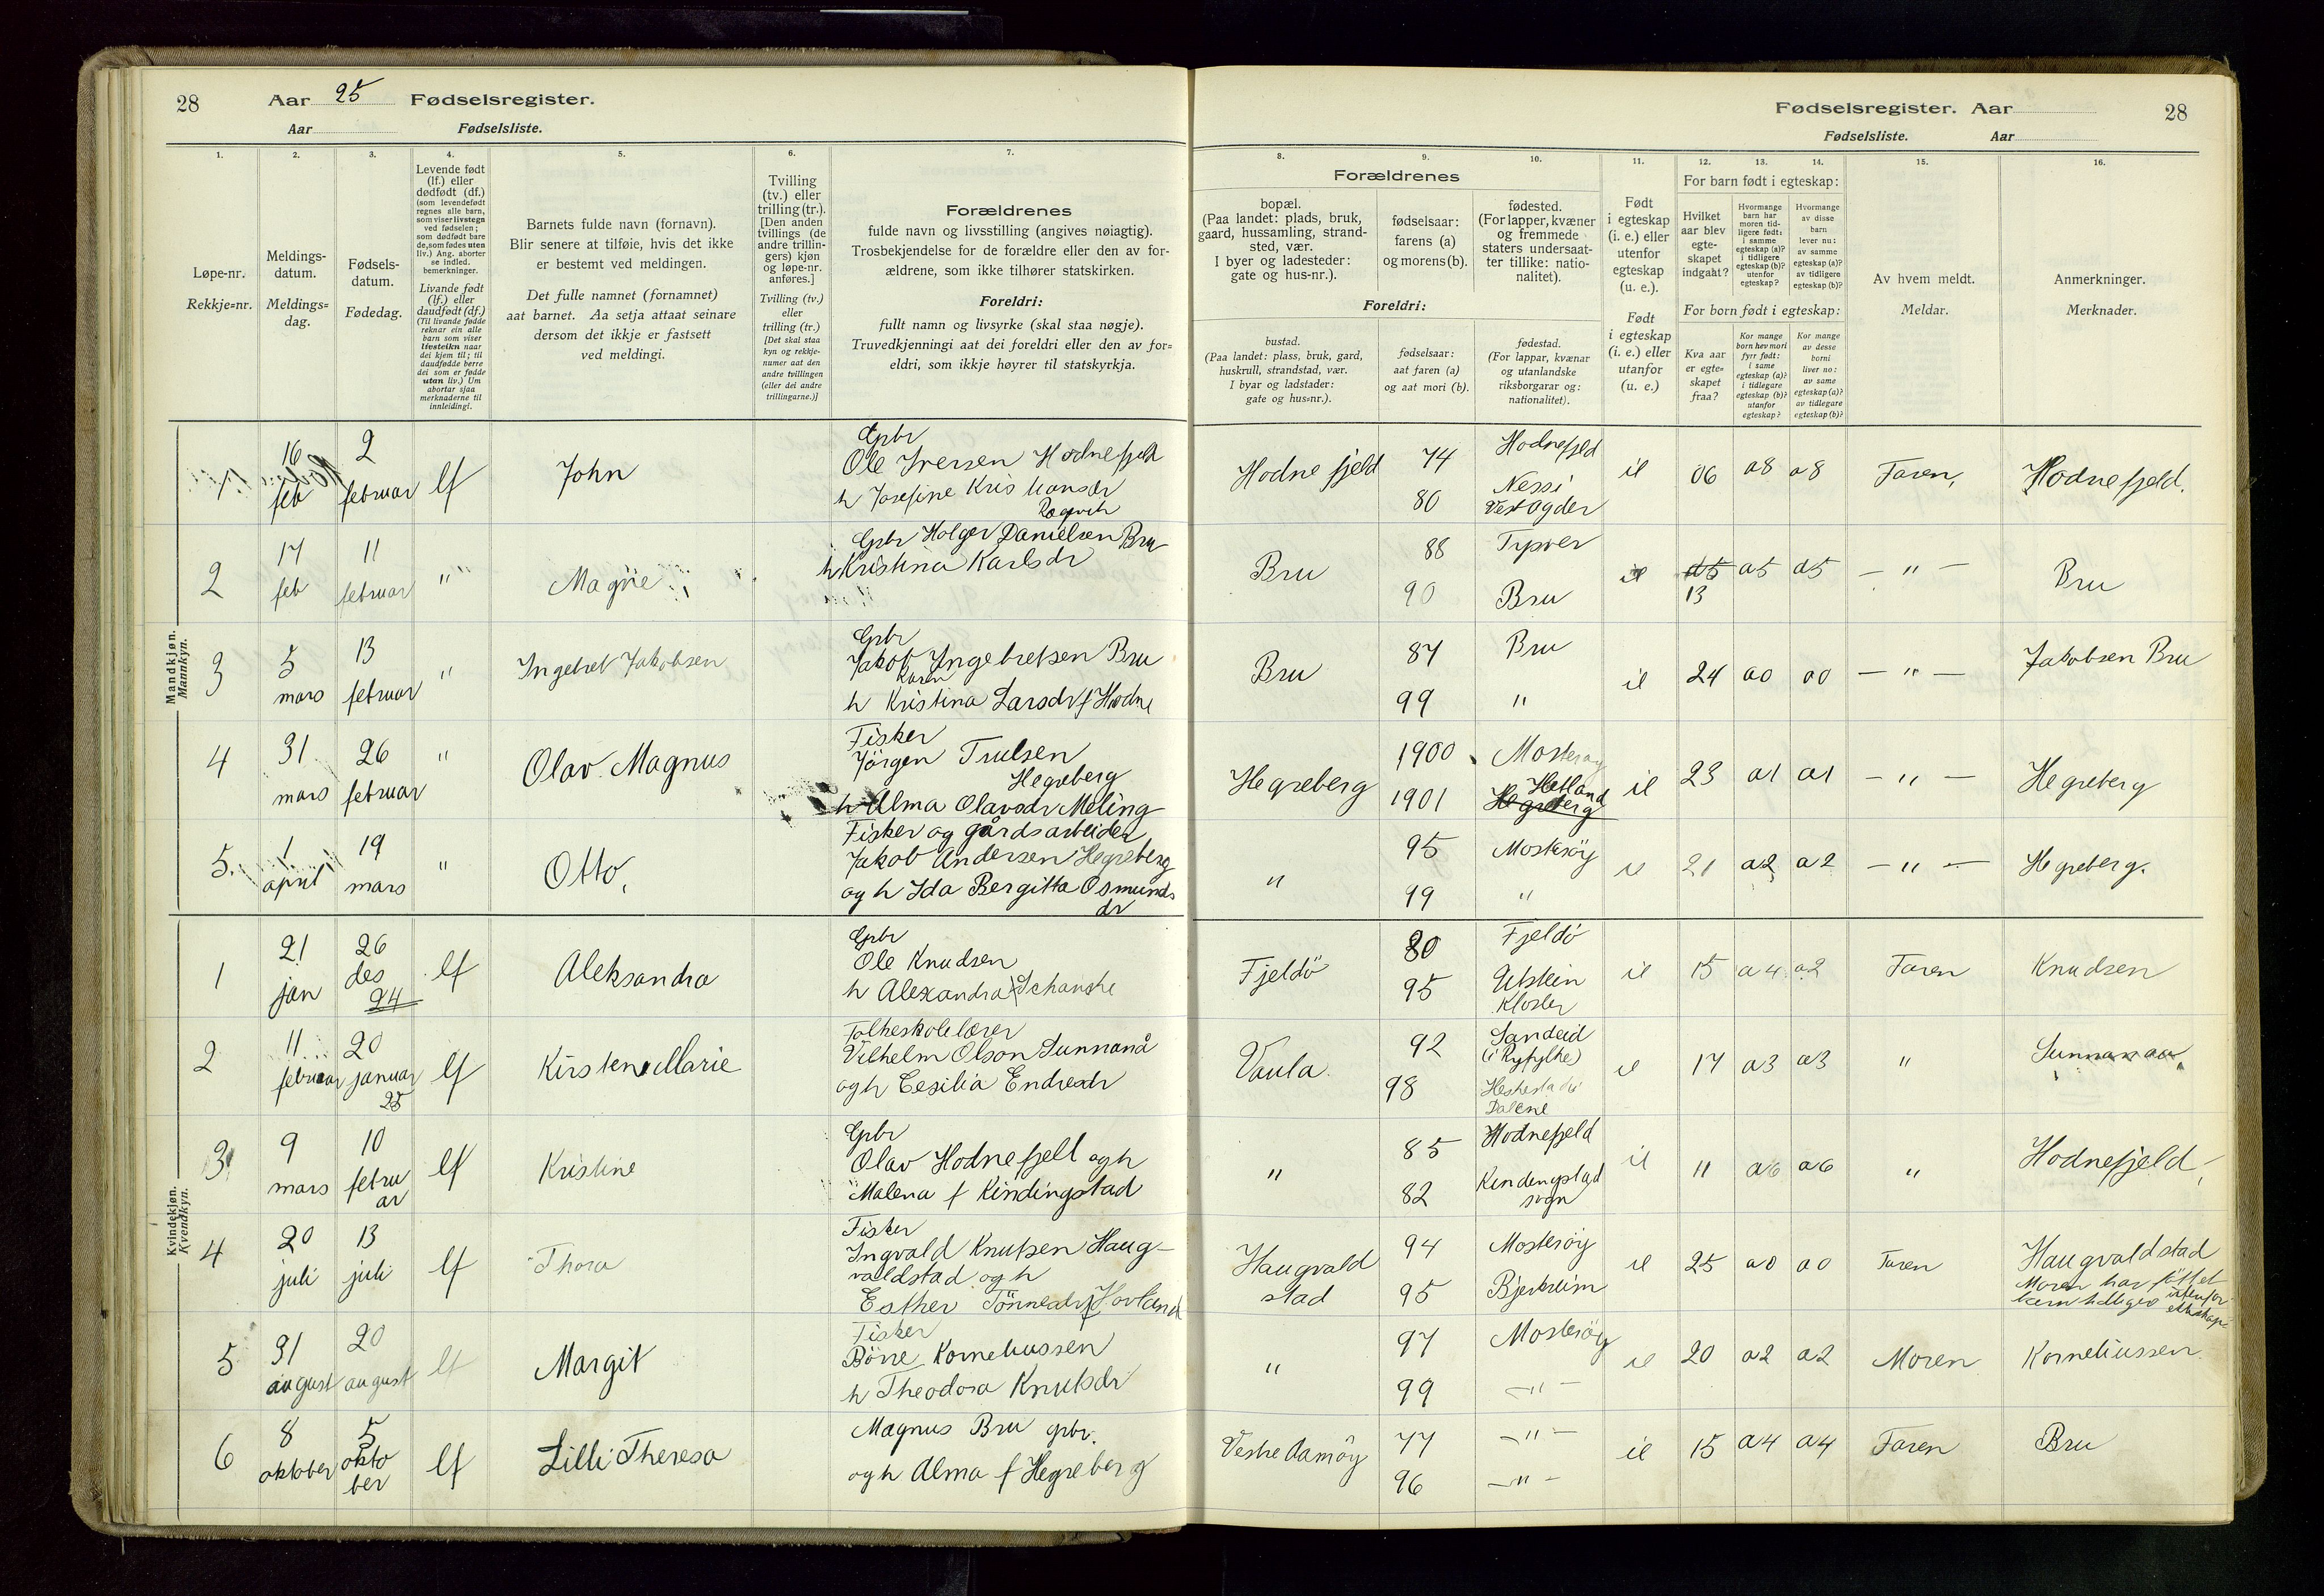 28 Aar 25 Fødselsregister.
Aar Fødselsliste.
Fødselsregister. Aar 28
Fødselsliste. Aar
1.
Løpe-nr.
Rekkje=nr.
2.
Meldings-
datum.
Meldings=
dag.
3.
Fødsels-
datum.
Fødedag.
4.
Levende født
(lf.) eller
dødfødt (df.)
(som levendefødt
regnes alle barn,
som viser livstegn
ved fødselen;
som dødfødt bare
de, som fødes uten
liv.) Ang. aborter
se indled.
bemerkninger.
Livande født
(lf.) eller
daudfødt (df.)
(Til livande fødde
reknar ein alle
barn som viser
livsteikn naar
dei kjem til; til
daudfødde berre
dei som er fødde
utan liv.) Um
abortar sjaa
merknaderne til
innleidingi.
5.
Barnets fulde navn (fornavn).
Blir senere at tilføie, hvis det ikke
er bestemt ved meldingen.
Det fulle namnet (fornamnet)
aat barnet. Aa setja attaat seinare
dersom det ikkje er fastsett
ved meldingi.
6.
Tvilling
(tv.) eller
trilling (tr.).
[Den anden
tvillings (de
andre trillin-
gers) kjøn
og løpe-nr.
anføres.]
Tvilling (tv.)
eller
trilling (tr.)
[Det skal staa
kyn og rekkje-
numer aat den
andre tvillingen
(eller dei andre
trillingarne.)]
7.
Forældrenes
fulde navn og livsstilling (angives nøiagtig).
Trosbekjendelse for de forældre eller den av for-
ældrene, som ikke tilhører statskirken.
Foreldri:
fullt namn og livsyrke (skal staa nøgje).
Truvedkjenningi aat dei foreldri eller den av for=
eldri, som ikkje høyrer til statskyrkja.
Forældrenes
8.
bopæl.
(Paa landet: plads, bruk,
gaard, hussamling, strand-
sted, vær.
I byer og ladesteder:
gate og hus-nr.).
9.
fødselsaar:
farens (a)
og morens (b).
10.
fødested.
(For lapper, kvæner
og fremmede
staters undersaat-
ter tillike: natio-
nalitet).
Foreldri:
bustad.
(Paa landet: plass, bruk, gard,
huskrull, strandstad, vær.
I byar og ladstader:
gate og hus=nr.).
fødselsaar:
aat faren (a)
og aat mori (b).
fødestad.
(For lappar, kvænar
og utanlandske
riksborgarar og:
nationalitet).
11.
Født
i egteskap
(i. e.) eller
utenfor
egteskap
(u. e.).
Født
i egteskap
(i. e.) eller
utanfor
(u. e.)
For barn født i egteskap:
12.
Hvilket
aar blev
egte-
skapet
indgaat?
13.
Hvormange
barn har
moren tid-
ligere født:
i samme
egteskap (a)?
i tidligere
egteskap (b)?
utenfor
egteskap?
14.
Hvormange
av disse
barn
lever nu:
av samme
egteskap (a)?
av tidligere
egteskap (b)?
For born født i egteskap:
Kva aar
er egte=
skapet
fraa?
Kor mange
born hev mori
fyrr født:
i same
egteskap (a)?
i tidlegare
egteskap (b)?
utanfor
egteskap?
Kor mange
av desse
borni
liver no:
av same
egteskap (a)?
av tidlegare
egteskap (b)?
15.
Av hvem meldt.
Meldar.
16.
Anmerkninger.
Merknader.
Mandkjøn.
Mannkyn.
1 16 feb 2 februar lf John
Gpbr
Ole Iversen Hodnefjeld
h Josefine Kristiansdr
Hodnefjeld 74 80 Hodnefjeld
Nessi
Vest Agder
il 06 a8 a8 Faren, Hodnefjeld.
2 17 feb 11 februar " " Magne
Gpbr Holger Danielsen Bru
h Kristina Karlsdr
Bru 88 90 Tysver
Bru
il 13 a5 a5 — " — Bru
3 5 mars 13 februar " Ingebret Jakobsen
Gpbr
Jakob Ingebretsen Bru
Karen
h Kristina Larsdr f Hodne
Bru 87 99 Bru
"
il 24 a0 a0 — " — Jakobsen Bru
4 31 mars 26 februar " Olav Magnus
Fisker
Jörgen Trulsen
Hegreberg
h Alma Olavsdr Meling
Hegreberg 1900 1901 Mosterøy
Hetland
Hegreberg
il 23 a1 a1 — " — Hegreberg
5. 1 april 19 mars " Otto,
Fisker og gårdsarbeider
Jakob Andersen Hegreberg
og h Ida Bergitta Osmunds
dr
" 95 99 Mosterøy
"
il 21 a2 a2 — " — Hegreberg.
Kvindekjøn.
Kvendkyn.
1 21 jan 26 des 24 lf Aleksandra
Gpbr
Ole Knudsen
h Alexandra f Schanche
Fjeldö 80 95 Fjeldö
Utstein
Kloster
il 15 a4 a2 Faren Knudsen
2 11 februar 20 januar 25 lf Kirsten Marie
Folkeskolelærer
Vilhelm Olson Sunnanå
og h Cesilia Endresdr
Vaula 92 98 Sandeid
(i Ryfylke)
Dalene
il 17 a3 a3 " Sunnanaa
3 9 mars 10 febru
ar lf Kristine
Gpbr
Olav Hodnefjell og h
Malena f Kindingstad
" 85 82 Hodnefjeld
Kindingstad
sogn
il 11 a6 a6 " Hodnefjeld,
4 20 juli 13 juli lf Thora
Fisker
Ingvald Knutsen Haug-
valdstad og h
Esther Tönnesdr f Hovland
Haugvald
stad 94 95 Mosterøy
Bjerkreim
il 25 a0 a0 Faren Haugvaldstad
Moren har født et
barn tidligere utenfor
ekteskap
5 31 august 20 august lf Margit
Fisker
Börre Korneliussen
h Theodora Knutsdr
" 97 99 Mosterøy
— " —
il 20 a2 a2 Moren Korneliussen
6 8 oktober 5 okto
ber lf Lilli Theresa
Magnus Bru gpbr.
og h Alma f Hegreberg
Vestre Åmøy 77 96 — " —
— " —
il 15 a4 a4 Faren Bru